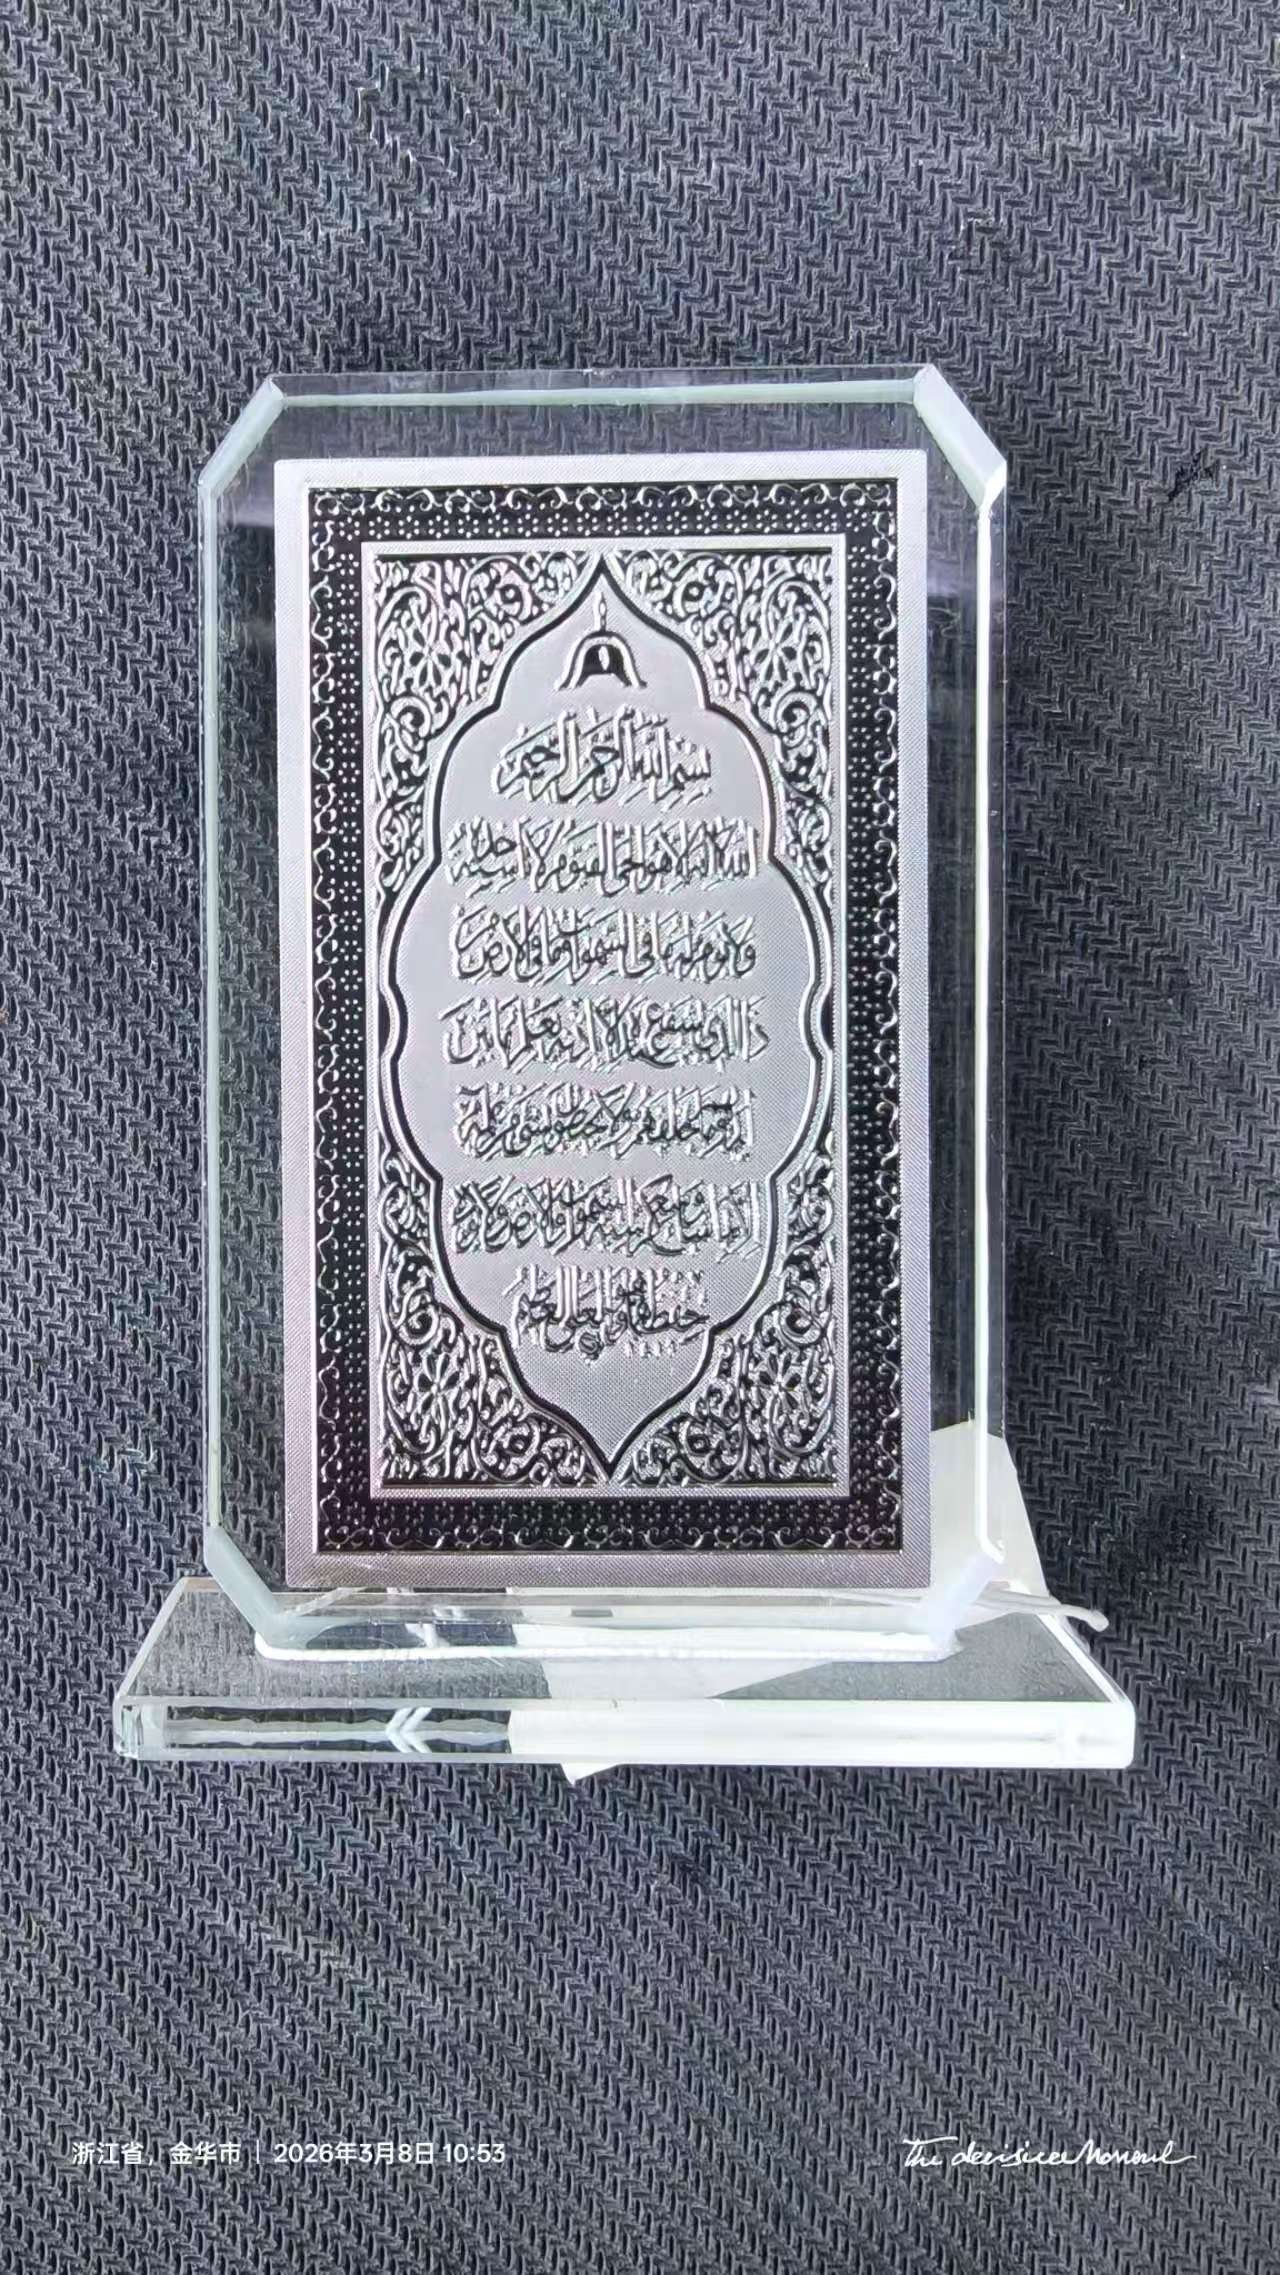 بسم الله الرحمن الرحيم
الله لا اله الا هو الحي القيوم لا تأخذه سنة
ولا نوم له ما في السموات وما في الارض من
ذا الذي يشفع عنده الا باذنه يعلم ما بين
ايديهم وما خلفهم ولا يحيطون بشيء من علمه
الا بما شاء وسع كرسيه السموات والارض ولا يؤده
حفظهما وهو العلي العظيم
浙江省，金华市 | 2026年3月8日 10:53
The decisive Moment